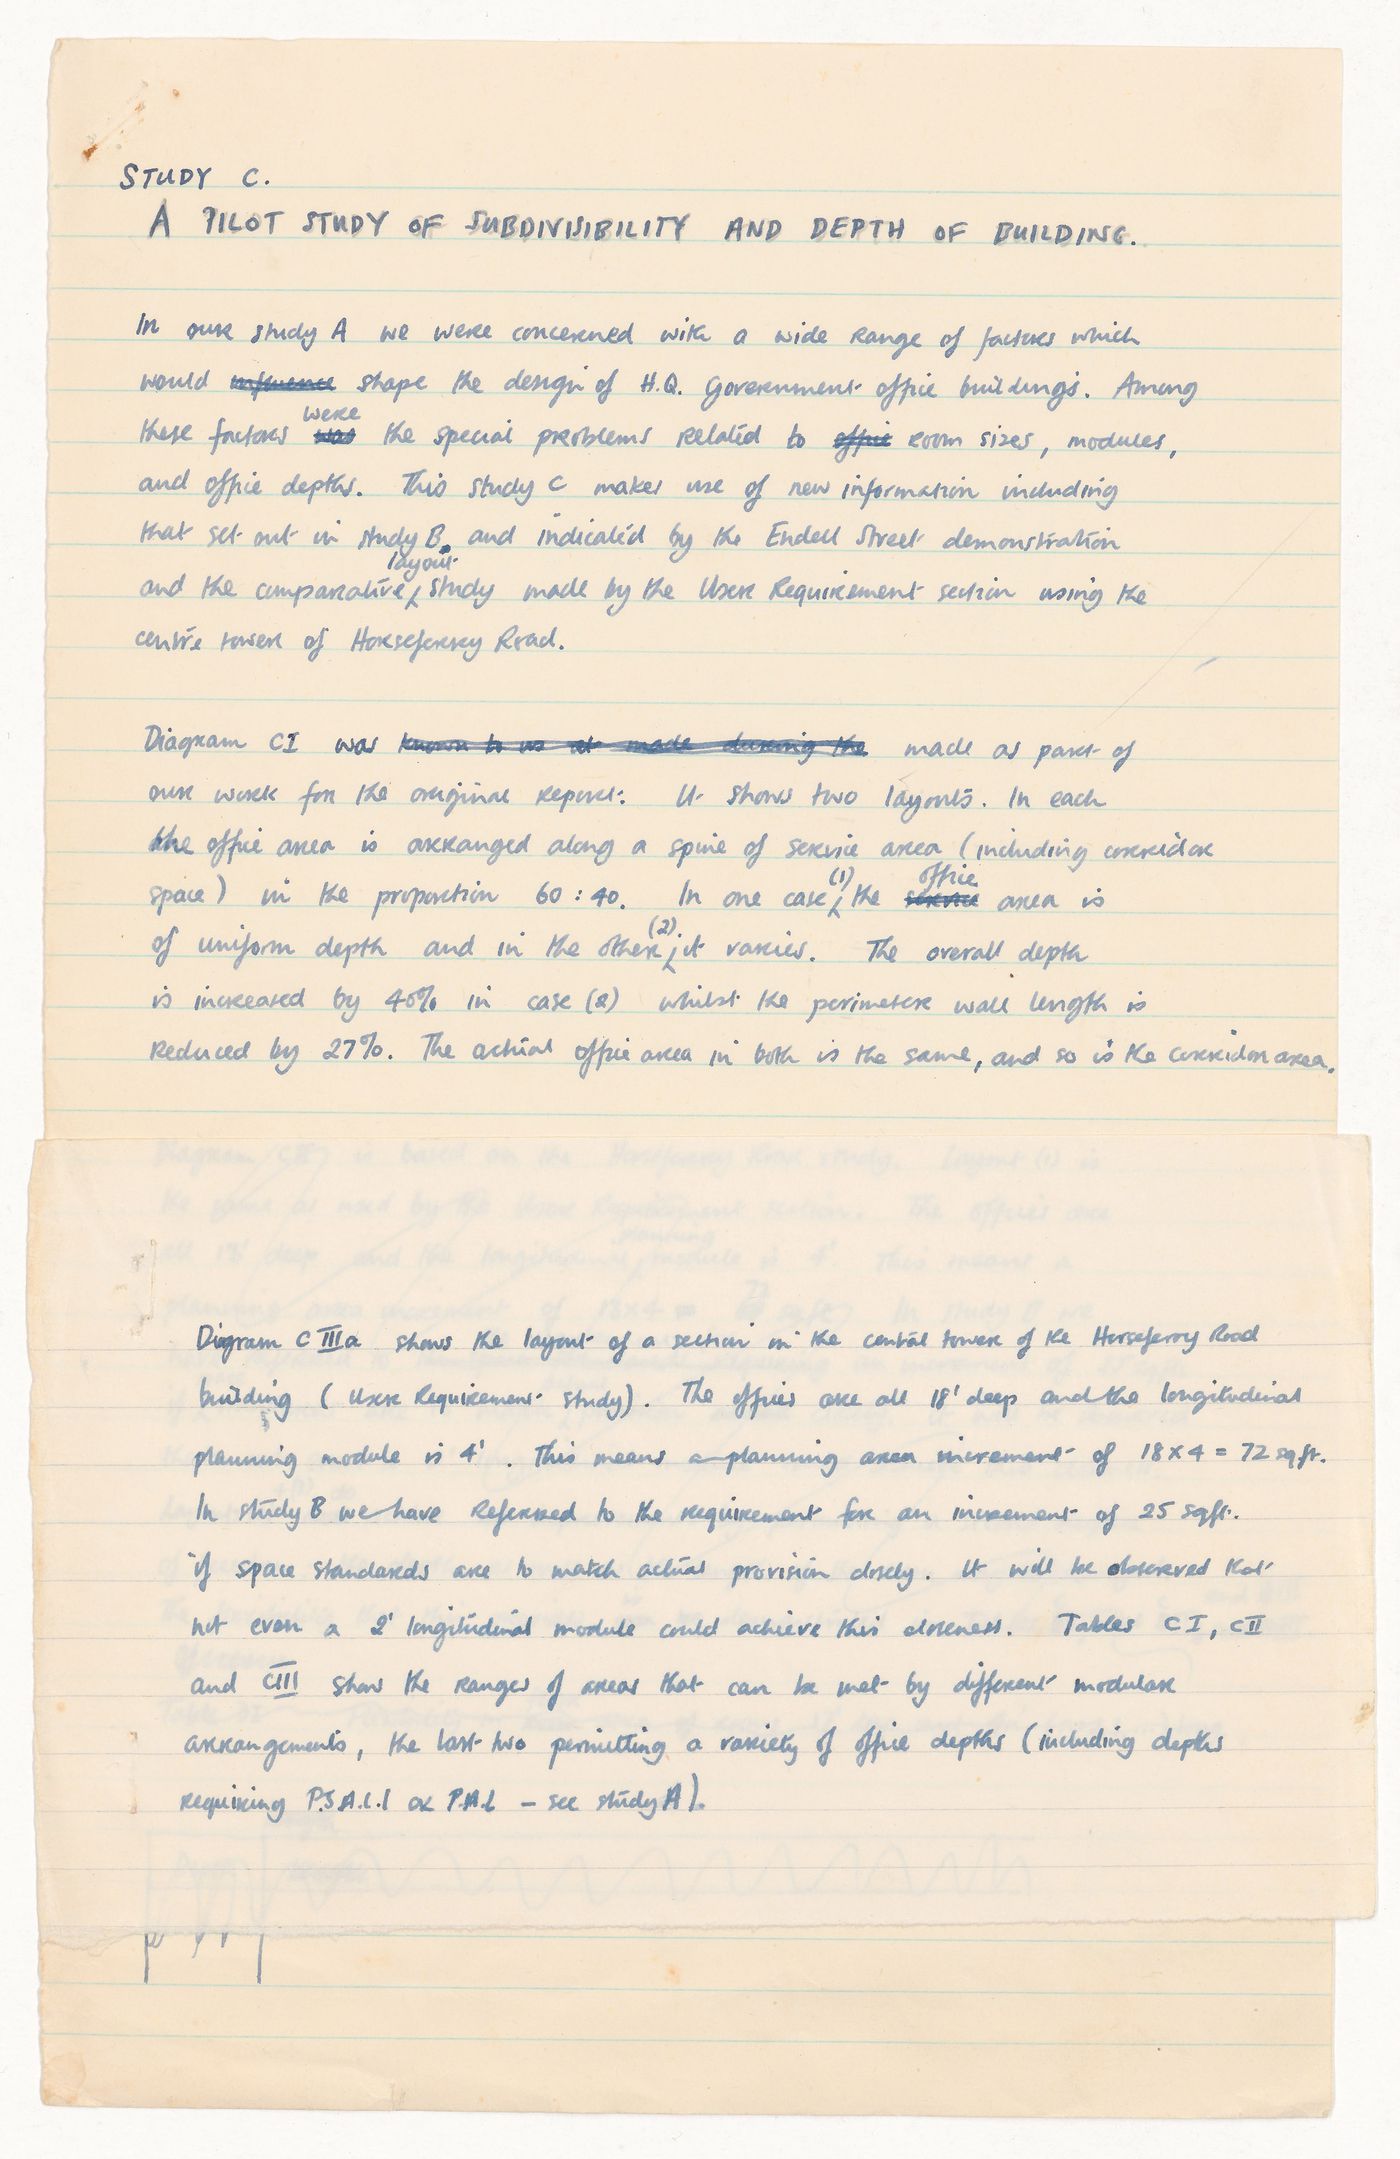 STUDY C.
A PILOT STUDY OF SUBDIVISIBILITY AND DEPTH OF BUILDING.
In our study A we were concerned with a wide range of factors which
would influence shape the design of H.Q. Government office buildings. Among
were
these factors was the special problems related to office room sizes, modules,
and office depths. This study C makes use of new information including
that set out in study B, and indicated by the Endell Street demonstration
layout
and the comparative study made by the User Requirement section using the
centre tower of Horseferry Road.
Diagram CI was known to us at made during the made as part of
our work for the original report. It shows two layouts. In each
the office area is arranged along a spine of service area (including corridor
(1) office
space) in the proportion 60:40. In one case the service area is
(2).
of uniform depth and in the other it varies. The overall depth
is increased by 40% in case (2) whilst the perimeter wall length is
reduced by 27%. The actual office area in both is the same, and so is the corridor area.
Diagram CII is based on the Horseferry Road study. Layout (1) is
the same as used by the User Requirement section. The offices are
planning
all 18' deep and the longitudinal module is 4'. This means a
planning area increment of 18x4 = 72 sq ft. In study B we
Diagram C IIIa shows the layout of a section in the central tower of the Horseferry Road
building (User Requirement study). The offices are all 18' deep and the longitudinal
planning module is 4'. This means a planning area increment of 18 x 4 = 72 sq.ft.
In study B we have referred to the requirement for an increment of 25 sqft.
if space standards are to match actual provision closely. It will be observed that
not even a 2' longitudinal module could achieve this closeness. Tables CI, CII
and CIII show the ranges of areas that can be met by different modular
arrangements, the last two permitting a variety of office depths (including depths
requiring P.S.A.L.I or P.A.L - see study A).